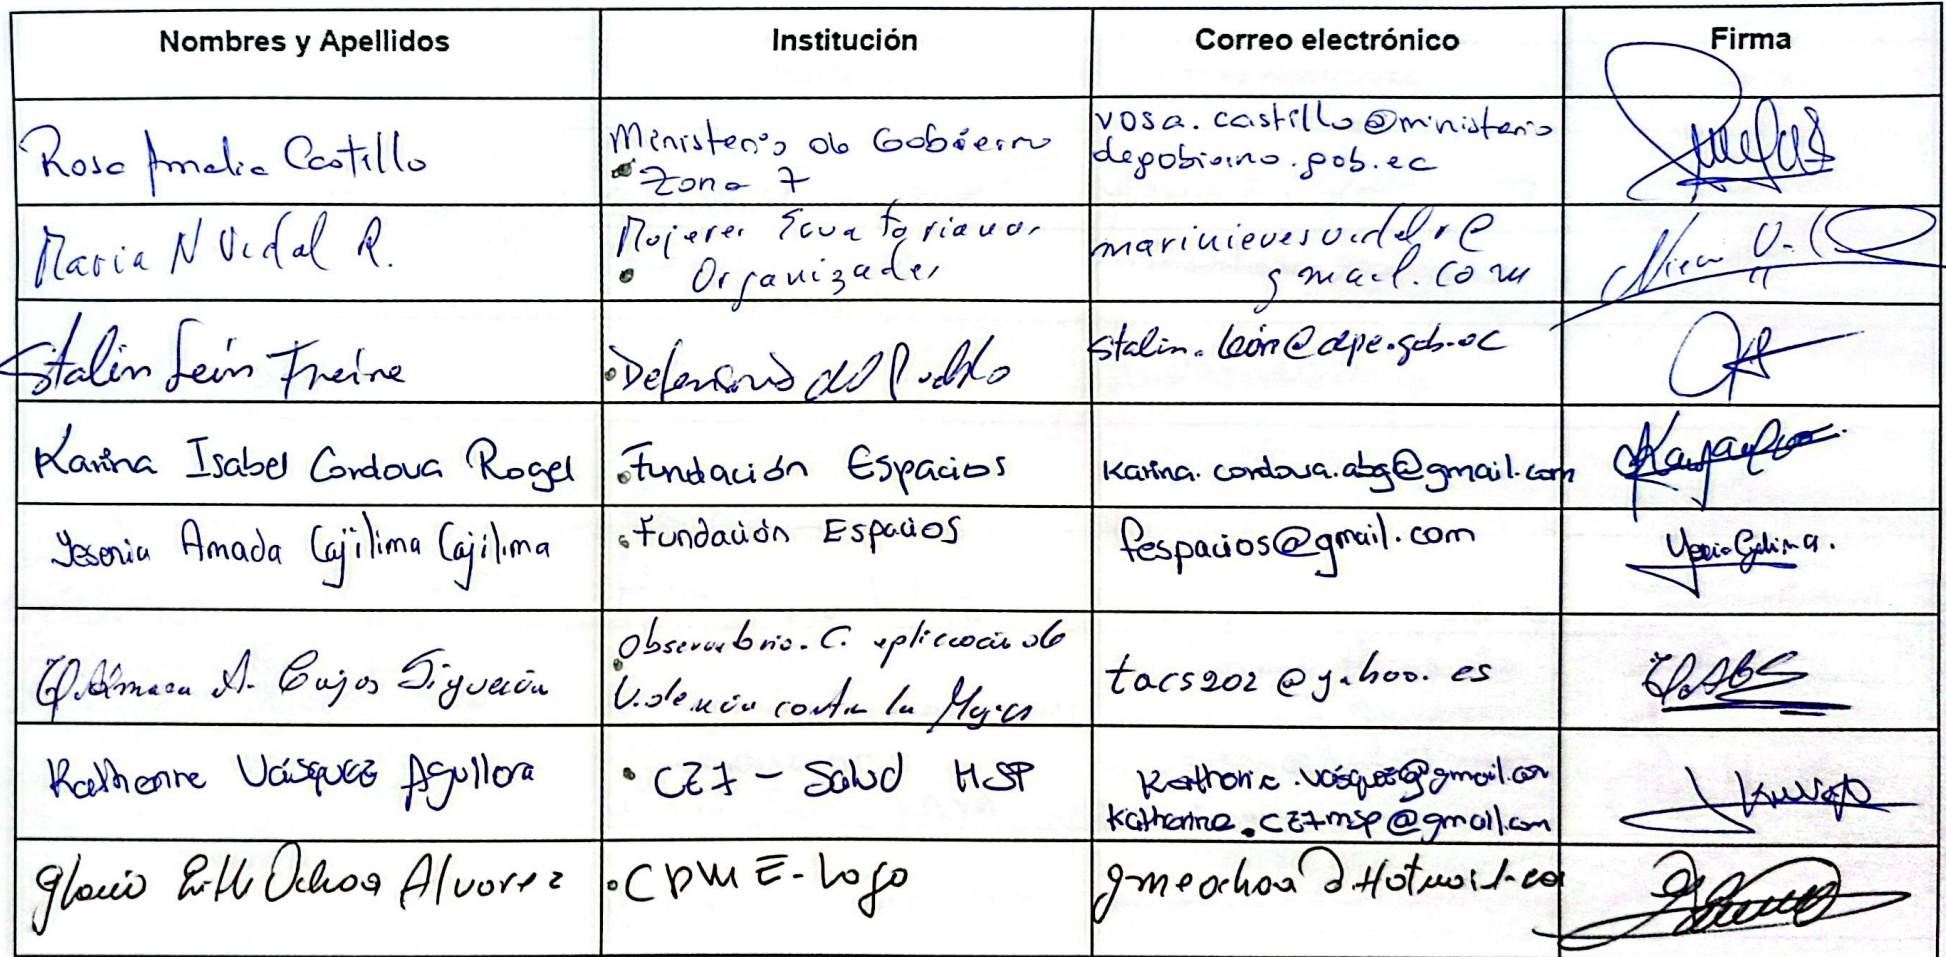 Nombres y Apellidos
Institución
Correo electrónico
Firma
Rosa Amalia Castillo
Ministerio de Gobierno
Zona 7
rosa.castillo@ministerio
degobierno.gob.ec
Maria N Vidal R.
Mujeres Ecuatorianas
Organizadas
marinievesvidalr@
gmail.com
Stalin León Freire
Defensoría del Pueblo
stalin.león@dpe.gob.ec
Karina Isabel Cordova Rogel
Fundación Espacios
karina.cordova.abg@gmail.com
Yesenia Amada Cajilima Cajilima
Fundación Espacios
fespacios@gmail.com
A. Cajas Sigüencia
Observatorio. C. aplicación de
Violencia contra la Mujer
tacs202@yahoo.es
Katherine Vásquez Aguilera
CZ7 - Salud MSP
Katherine.vásquez@gmail.com
Katherine.CZ7msp@gmail.com
Gloria Ochoa Alvarez
CPME-Loja
gmeochoa@Hotmail.com